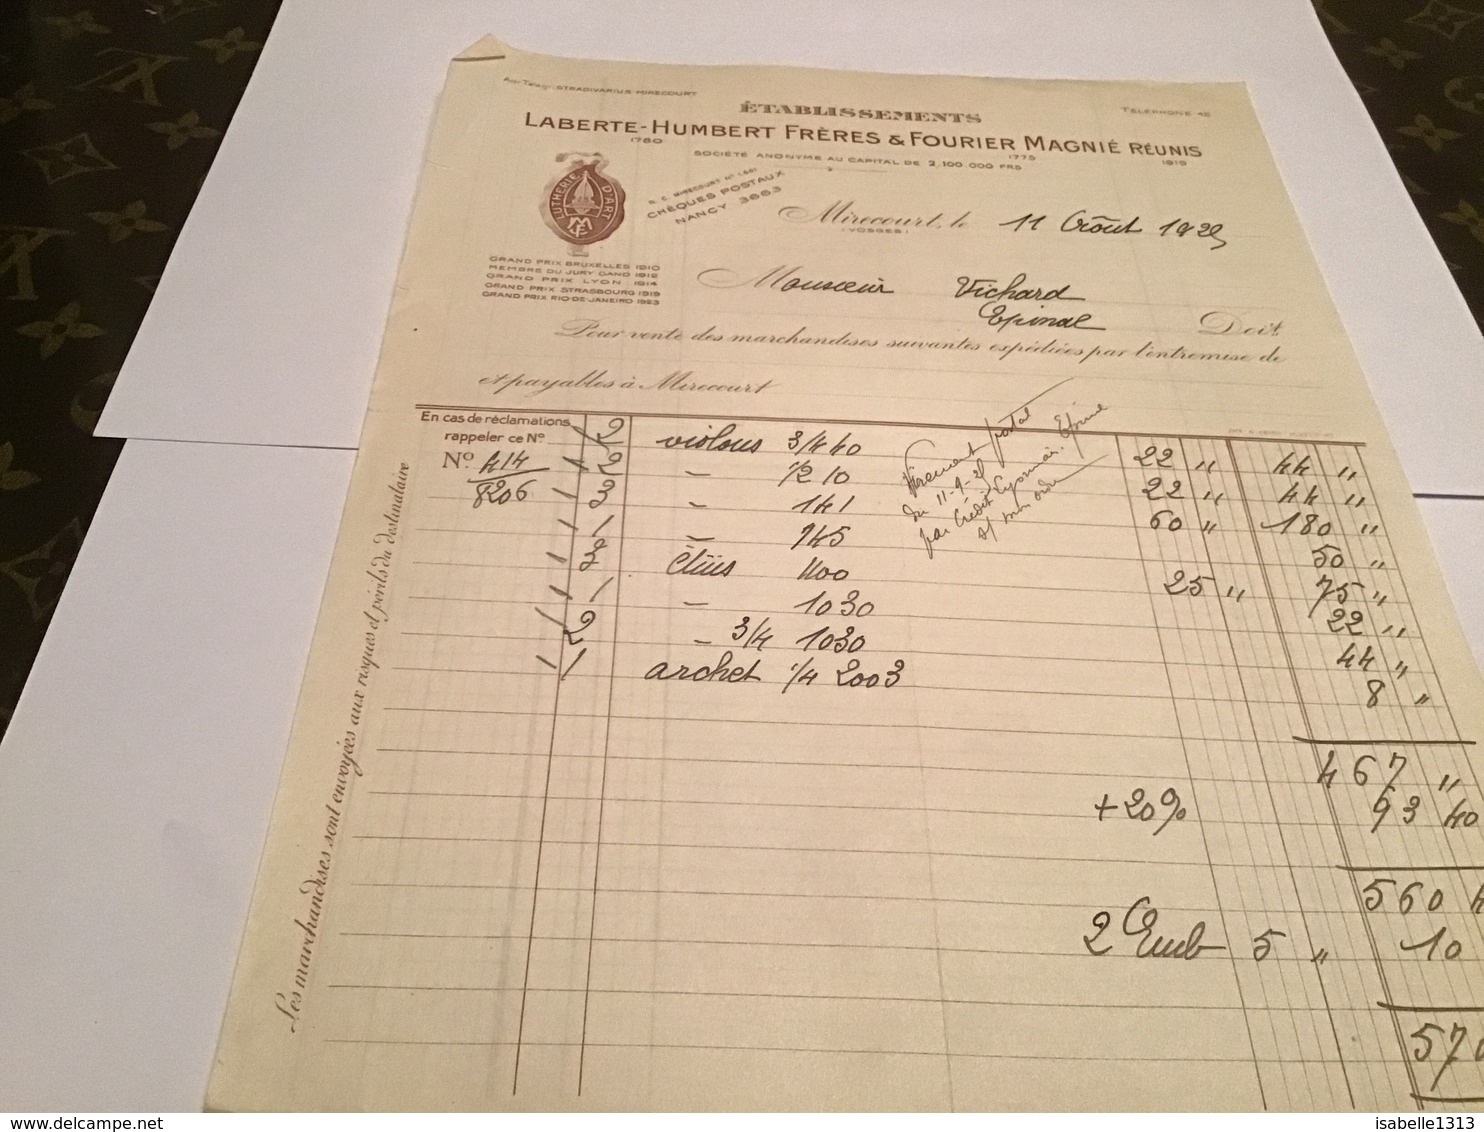 STRADIVARIUS-MIRECOURT
TÉLÉPHONE 48
ÉTABLISSEMENTS
LABERTE-HUMBERT FRÈRES & FOURIER MAGNIÉ RÉUNIS
1780 1775 1919
SOCIÉTÉ ANONYME AU CAPITAL DE 2.100.000 FRS
R. C. MIRECOURT Nº
CHÈQUES POSTAUX
NANCY 3663
LUTHERIE D'ART
Mirecourt, le 11 Août 1925
(VOSGES)
GRAND PRIX BRUXELLES 1910
MEMBRE DU JURY GAND 1912
GRAND PRIX LYON 1914
GRAND PRIX STRASBOURG 1919
GRAND PRIX RIO-DE-JANEIRO 1923
Monsieur Vichard
Epinal Doit
Pour vente des marchandises suivantes expédiées par l'entremise de
et payables à Mirecourt
En cas de réclamations
rappeler ce Nº
Nº 414
8206
2 violons 3/4 40 22 " 44 "
2 – 1/2 10 22 " 44 "
3 – 141 60 " 180 "
1 – 145 50 "
3 Etuis 400 25 " 75 "
1 – 1030 22 "
2 – 3/4 1030 44 "
1 archet 1/4 2003 8 "
Virement postal
du 11-9-25
par Crédit Lyonnais
467 "
+20% 93 40
560
2 Emb 5 " 10
Les marchandises sont envoyées aux risques et périls du destinataire
isabelle1313